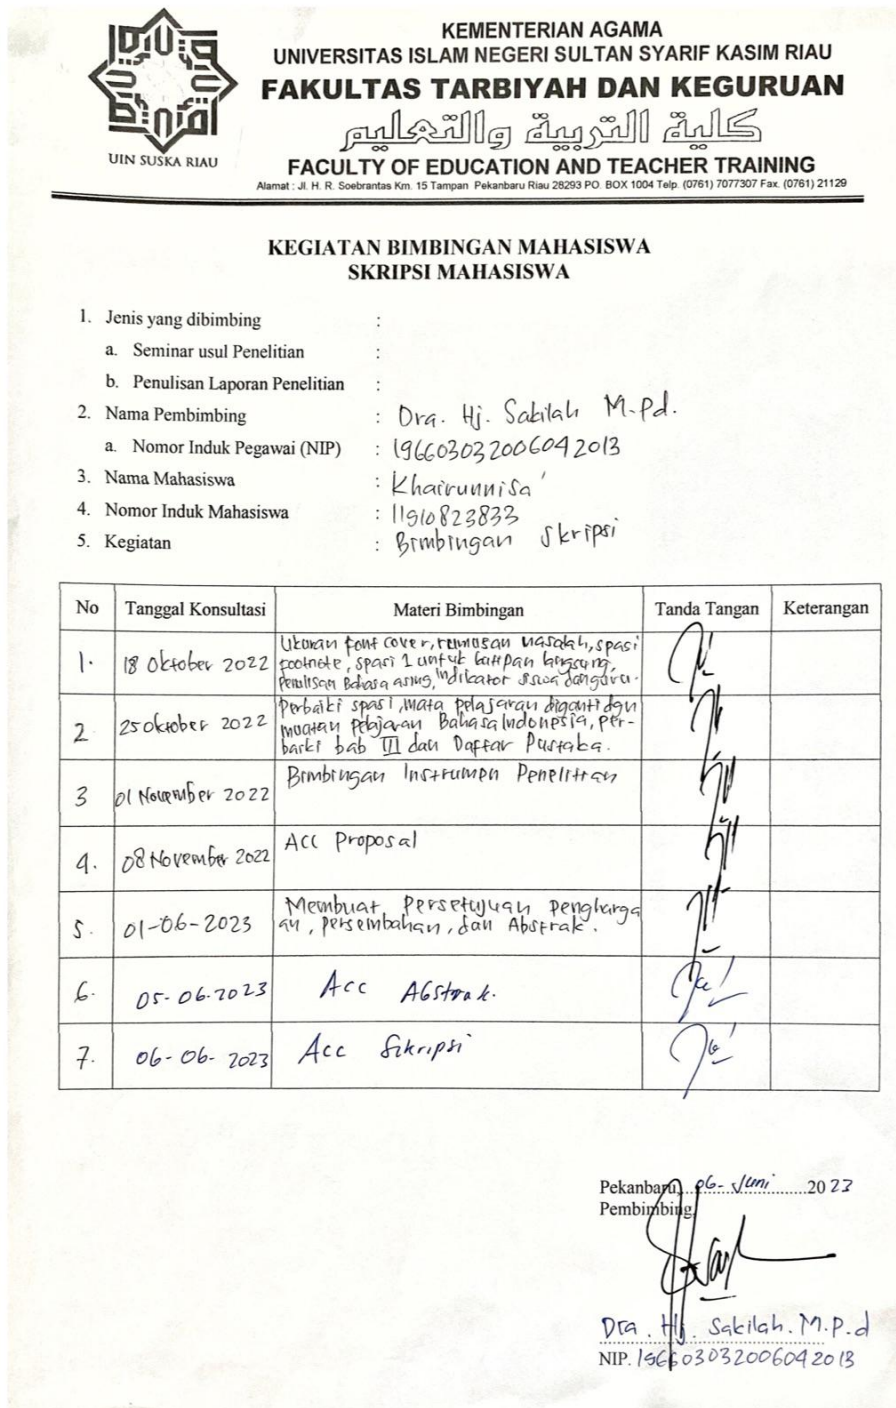 KEMENTERIAN AGAMA
UNIVERSITAS ISLAM NEGERI SULTAN SYARIF KASIM RIAU
FAKULTAS TARBIYAH DAN KEGURUAN
كلية التربية والتعليم
FACULTY OF EDUCATION AND TEACHER TRAINING
UIN SUSKA RIAU
Alamat : Jl. H. R. Soebrantas Km. 15 Tampan Pekanbaru Riau 28293 PO. BOX 1004 Telp. (0761) 7077307 Fax. (0761) 21129
KEGIATAN BIMBINGAN MAHASISWA
SKRIPSI MAHASISWA
1. Jenis yang dibimbing :
a. Seminar usul Penelitian :
b. Penulisan Laporan Penelitian :
2. Nama Pembimbing : Dra. Hj. Sakilah M.Pd.
a. Nomor Induk Pegawai (NIP) : 196603032006042013
3. Nama Mahasiswa : Khairunnisa'
4. Nomor Induk Mahasiswa : 11910823833
5. Kegiatan : Bimbingan Skripsi
No Tanggal Konsultasi Materi Bimbingan Tanda Tangan Keterangan
1. 18 Oktober 2022 Ukuran font cover, rumusan masalah, spasi
footnote, spasi 1 untuk kutipan langsung,
Penulisan Bahasa asing, indikator siswa dan guru.
2 25 oktober 2022 Perbaiki spasi, mata pelajaran diganti dgn
muatan pelajaran Bahasa Indonesia, per-
baiki bab III dan Daftar Pustaka.
3 01 November 2022 Bimbingan Instrumen Penelitian
4. 08 November 2022 Acc Proposal
5. 01-06-2023 Membuat Persetujuan Pengharga
an, persembahan, dan Abstrak.
6. 05-06-2023 Acc Abstrak.
7. 06-06-2023 Acc Sikripsi
Pekanbaru, 06-Juni 2023
Pembimbing
Dra. Hj. Sakilah. M.P.d
NIP. 196603032006042013